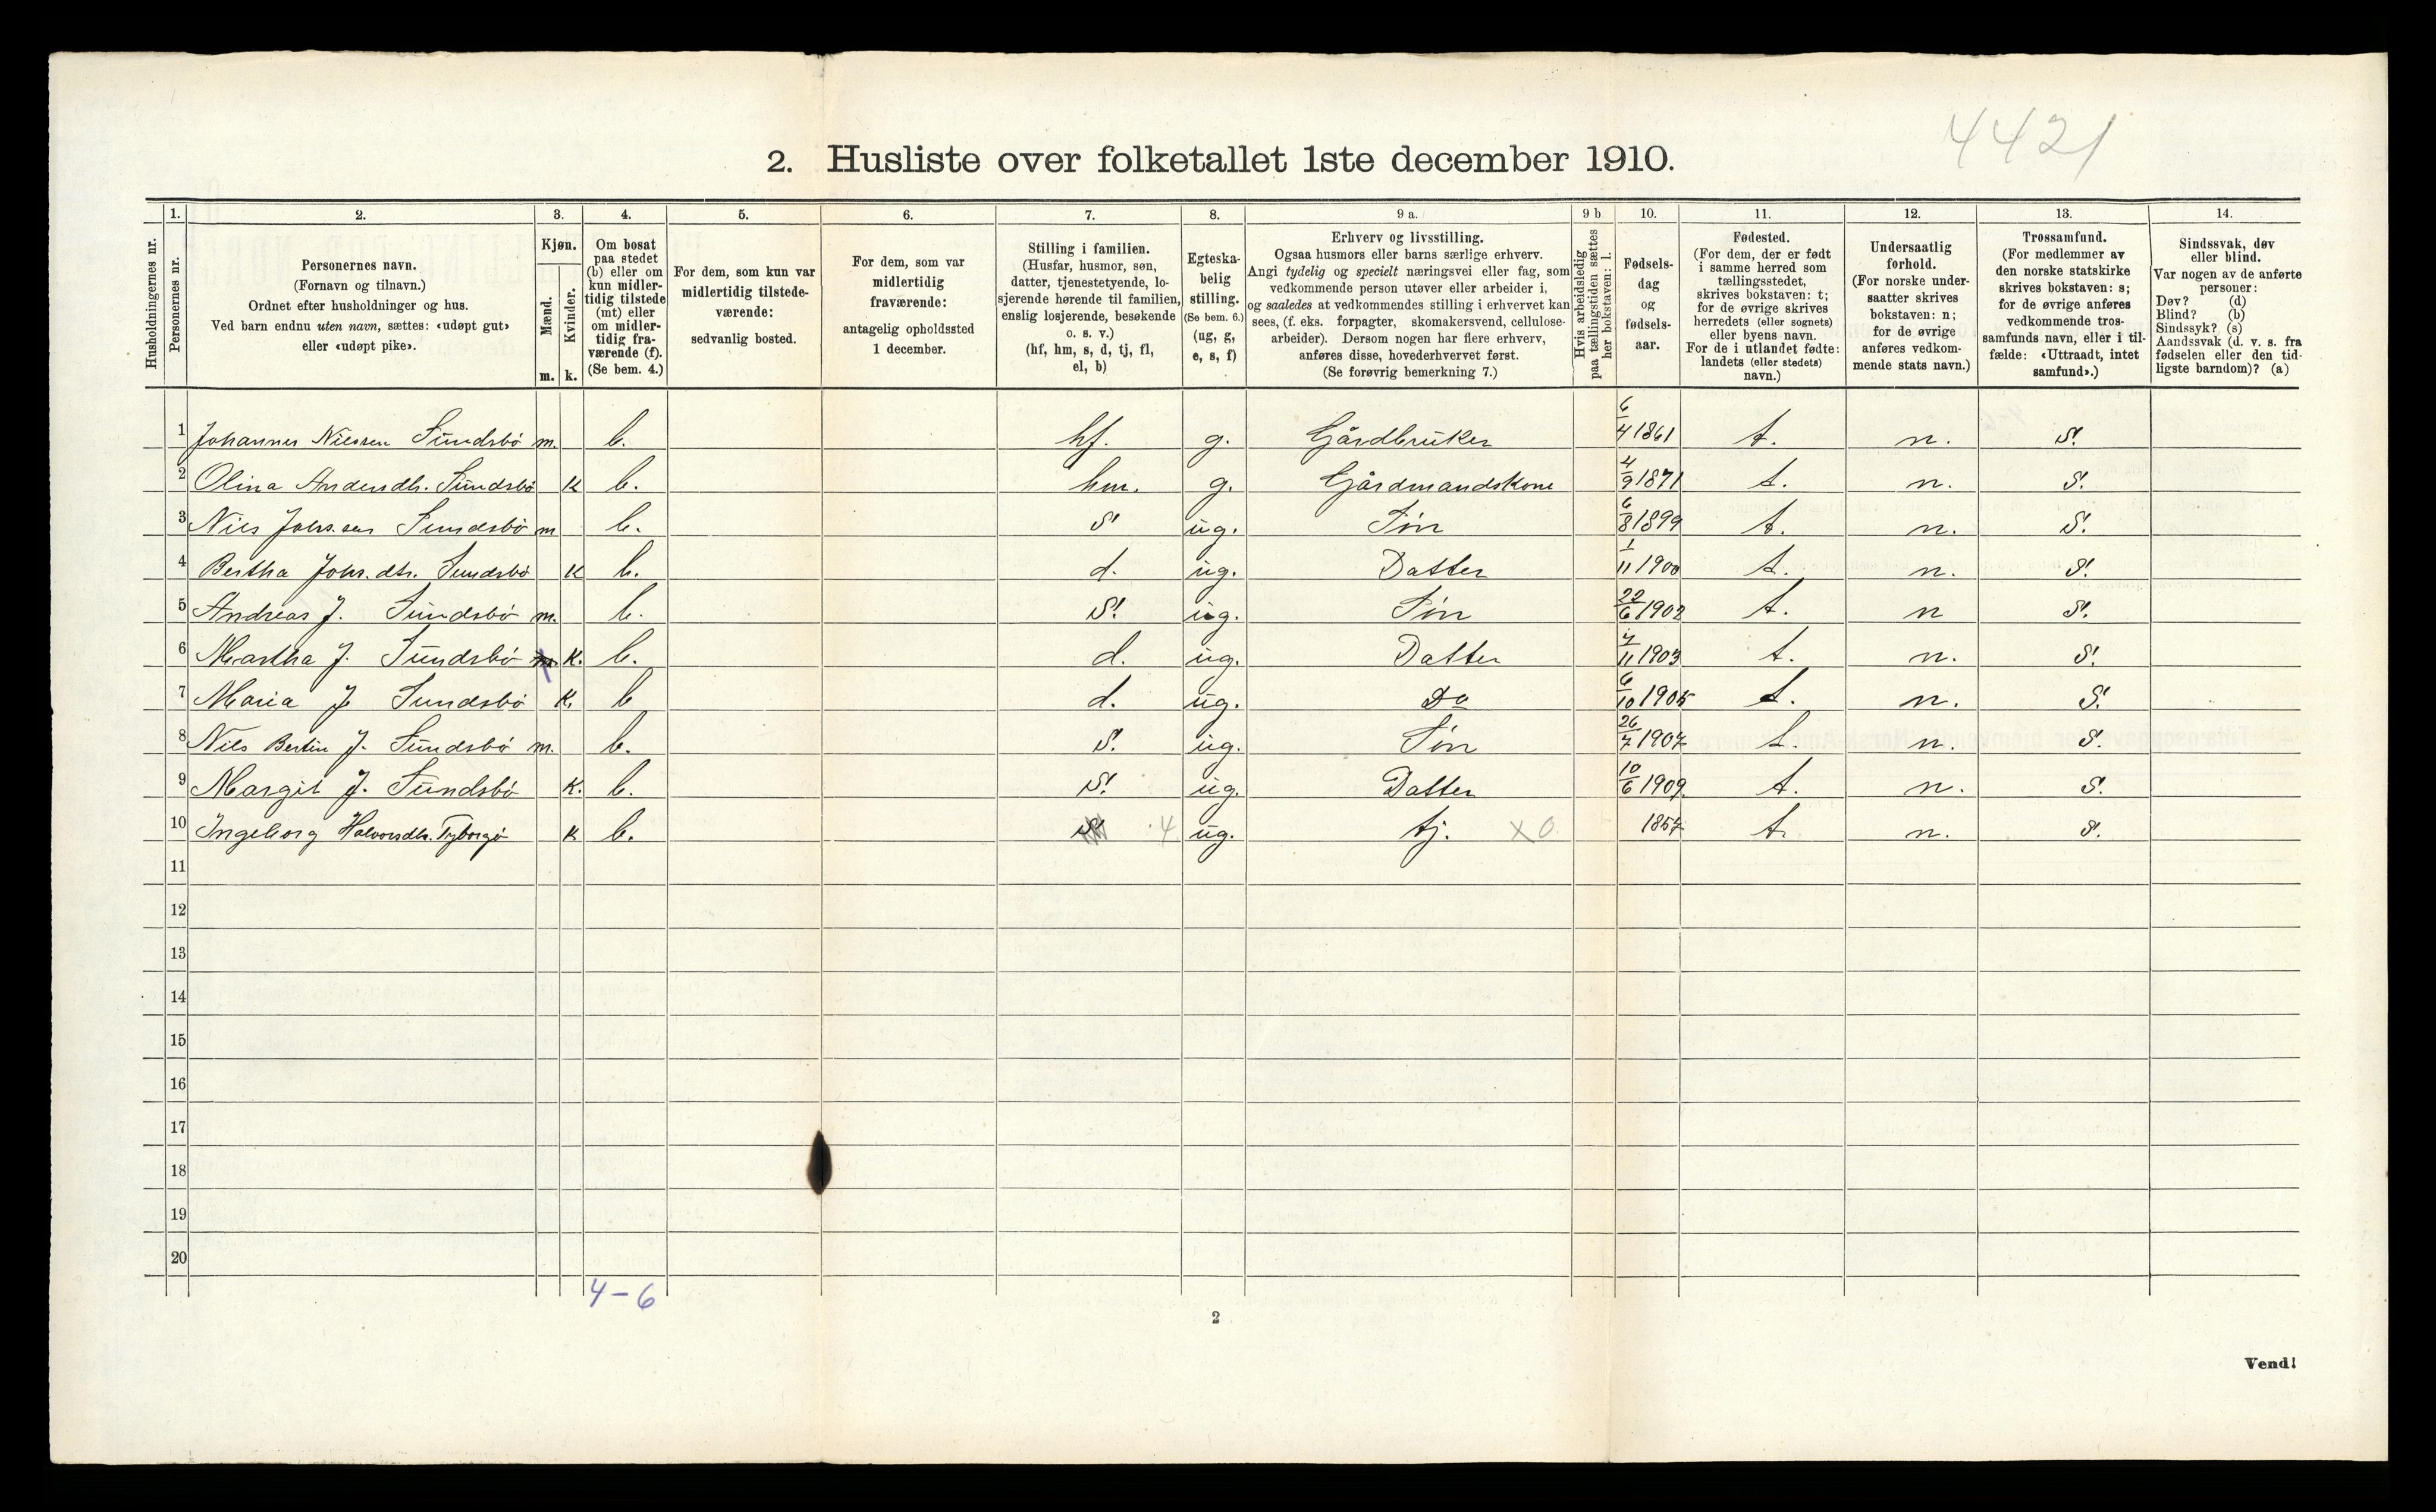 4421
2. Husliste over folketallet 1ste december 1910.
Husholdningernes nr.
1.
Personernes nr.
2.
Personernes navn.
(Fornavn og tilnavn.)
Ordnet efter husholdninger og hus.
Ved barn endnu uten navn, sættes: «udøpt gut»
eller «udøpt pike».
3.
Kjøn.
Mænd.
Kvinder.
m. k.
4.
Om bosat
paa stedet
(b) eller om
kun midler-
tidig tilstede
(mt) eller
om midler-
tidig fra-
værende (f).
(Se bem. 4.)
5.
For dem, som kun var
midlertidig tilstede-
værende:
sedvanlig bosted.
6.
For dem, som var
midlertidig
fraværende:
antagelig opholdssted
1 december.
7.
Stilling i familien.
(Husfar, husmor, søn,
datter, tjenestetyende, lo-
sjerende hørende til familien,
enslig losjerende, besøkende
o. s. v.)
(hf, hm, s, d, tj, fl,
el, b)
8.
Egteska-
belig
stilling.
(Se bem. 6.)
(ug, g,
e, s, f)
9 a.
Erhverv og livsstilling.
Ogsaa husmors eller barns særlige erhverv.
Angi tydelig og specielt næringsvei eller fag, som
vedkommende person utøver eller arbeider i,
og saaledes at vedkommendes stilling i erhvervet kan
sees, (f. eks. forpagter, skomakersvend, cellulose-
arbeider). Dersom nogen har flere erhverv,
anføres disse, hovederhvervet først.
(Se forøvrig bemerkning 7.)
9 b
Hvis arbeidsledig
paa tællingstiden sættes
her bokstaven: l.
10.
Fødsels-
dag
og
fødsels-
aar.
11.
Fødested.
(For dem, der er født
i samme herred som
tællingsstedet,
skrives bokstaven: t;
for de øvrige skrives
herredets (eller sognets)
eller byens navn.
For de i utlandet fødte:
landets (eller stedets)
navn.)
12.
Undersaatlig
forhold.
(For norske under-
saatter skrives
bokstaven: n;
for de øvrige
anføres vedkom-
mende stats navn.)
13.
Trossamfund.
(For medlemmer av
den norske statskirke
skrives bokstaven: s;
for de øvrige anføres
vedkommende tros-
samfunds navn, eller i til-
fælde: «Uttraadt, intet
samfund».)
14.
Sindssvak, døv
eller blind.
Var nogen av de anførte
personer:
Døv? (d)
Blind? (b)
Sindssyk? (s)
Aandssvak (d. v. s. fra
fødselen eller den tid-
ligste barndom)? (a)
1 Johannes Nilssen Sundsbö m. b. hf. g. Gårdbruker 6/4 1861 t. n. S.
2 Olina Andersdtr. Sundsbö K b. hm. g. Gårdmandskone 4/9 1871 t. n. S.
3 Nils Johs.sen Sundsbö m b. S ug. Sön 6/8 1899 t. n. S.
4 Bertha Johs.dtr. Sundsbö K b. d. ug. Datter 1/11 1900 t. n. S.
5 Andreas J. Sundsbö m. b. S. ug. Sön 22/6 1902 t. n S.
6 Martha J. Sundsbö m. K. b. d. ug. Datter 7/11 1903 t. n. S.
7 Maria J Sundsbö K. b d. ug. Do 6/10 1905 t. n. S.
8 Nils Bertin J. Sundsbö m. b. S. ug. Sön 26/7 1907 t. n. S.
9 Margit J. Sundsbö K. b. S. ug. Datter 10/6 1909. t. n. S.
10 Ingeborg Halvorsdtr. K b. 4 ug. tj. x 0. 1857 t. n. S.
11
12
13
14
15
16
17
18
19
20
4-6
2
Vend!